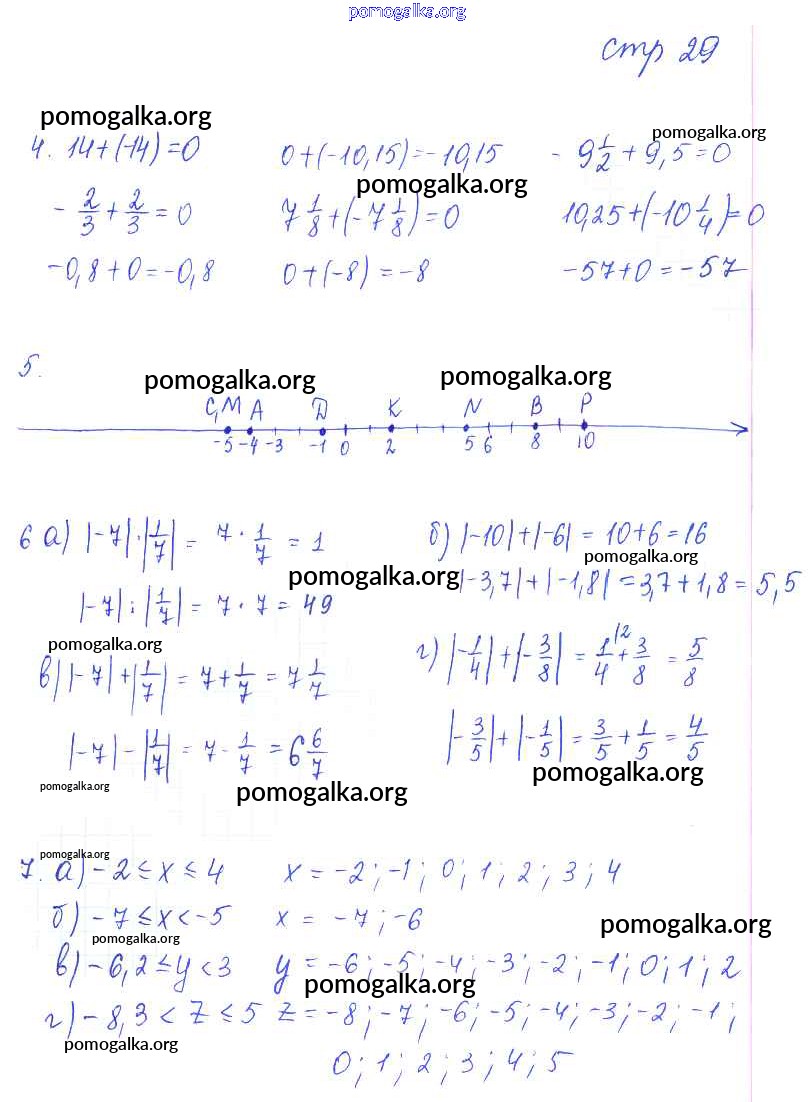 pomogalka.org
стр 29
pomogalka.org
pomogalka.org
4. 14+(-14)=0 0+(-10,15)=-10,15 -9 1/2+9,5=0
pomogalka.org
-2/3+2/3=0 7 1/8+(-7 1/8)=0 10,25+(-10 1/4)=0
-0,8+0=-0,8 0+(-8)=-8 -57+0=-57
5.
pomogalka.org pomogalka.org
C,M A D K N B P
-5 -4 -3 -1 0 2 5 6 8 10
6 а) |-7|·|1/7| = 7·1/7 = 1 б) |-10|+|-6| = 10+6=16
pomogalka.org
pomogalka.org
|-3,7|+|-1,8|=3,7+1,8=5,5
|-7|:|1/7| = 7·7=49
pomogalka.org
в) |-7|+|1/7| = 7+1/7=7 1/7 г) |-1/4|+|-3/8| = 1/4 |2 + 3/8 = 5/8
|-7|-|1/7| = 7-1/7=6 6/7 |-3/5|+|-1/5| = 3/5+1/5=4/5
pomogalka.org
pomogalka.org
pomogalka.org
pomogalka.org
7. а) -2≤x≤4 x=-2;-1;0;1;2;3;4
б) -7≤x<-5 x=-7;-6
pomogalka.org
pomogalka.org
в) -6,2≤y<3 y=-6;-5;-4;-3;-2;-1;0;1;2
pomogalka.org
г) -8,3<z≤5 z=-8;-7;-6;-5;-4;-3;-2;-1;
pomogalka.org
0;1;2;3;4;5